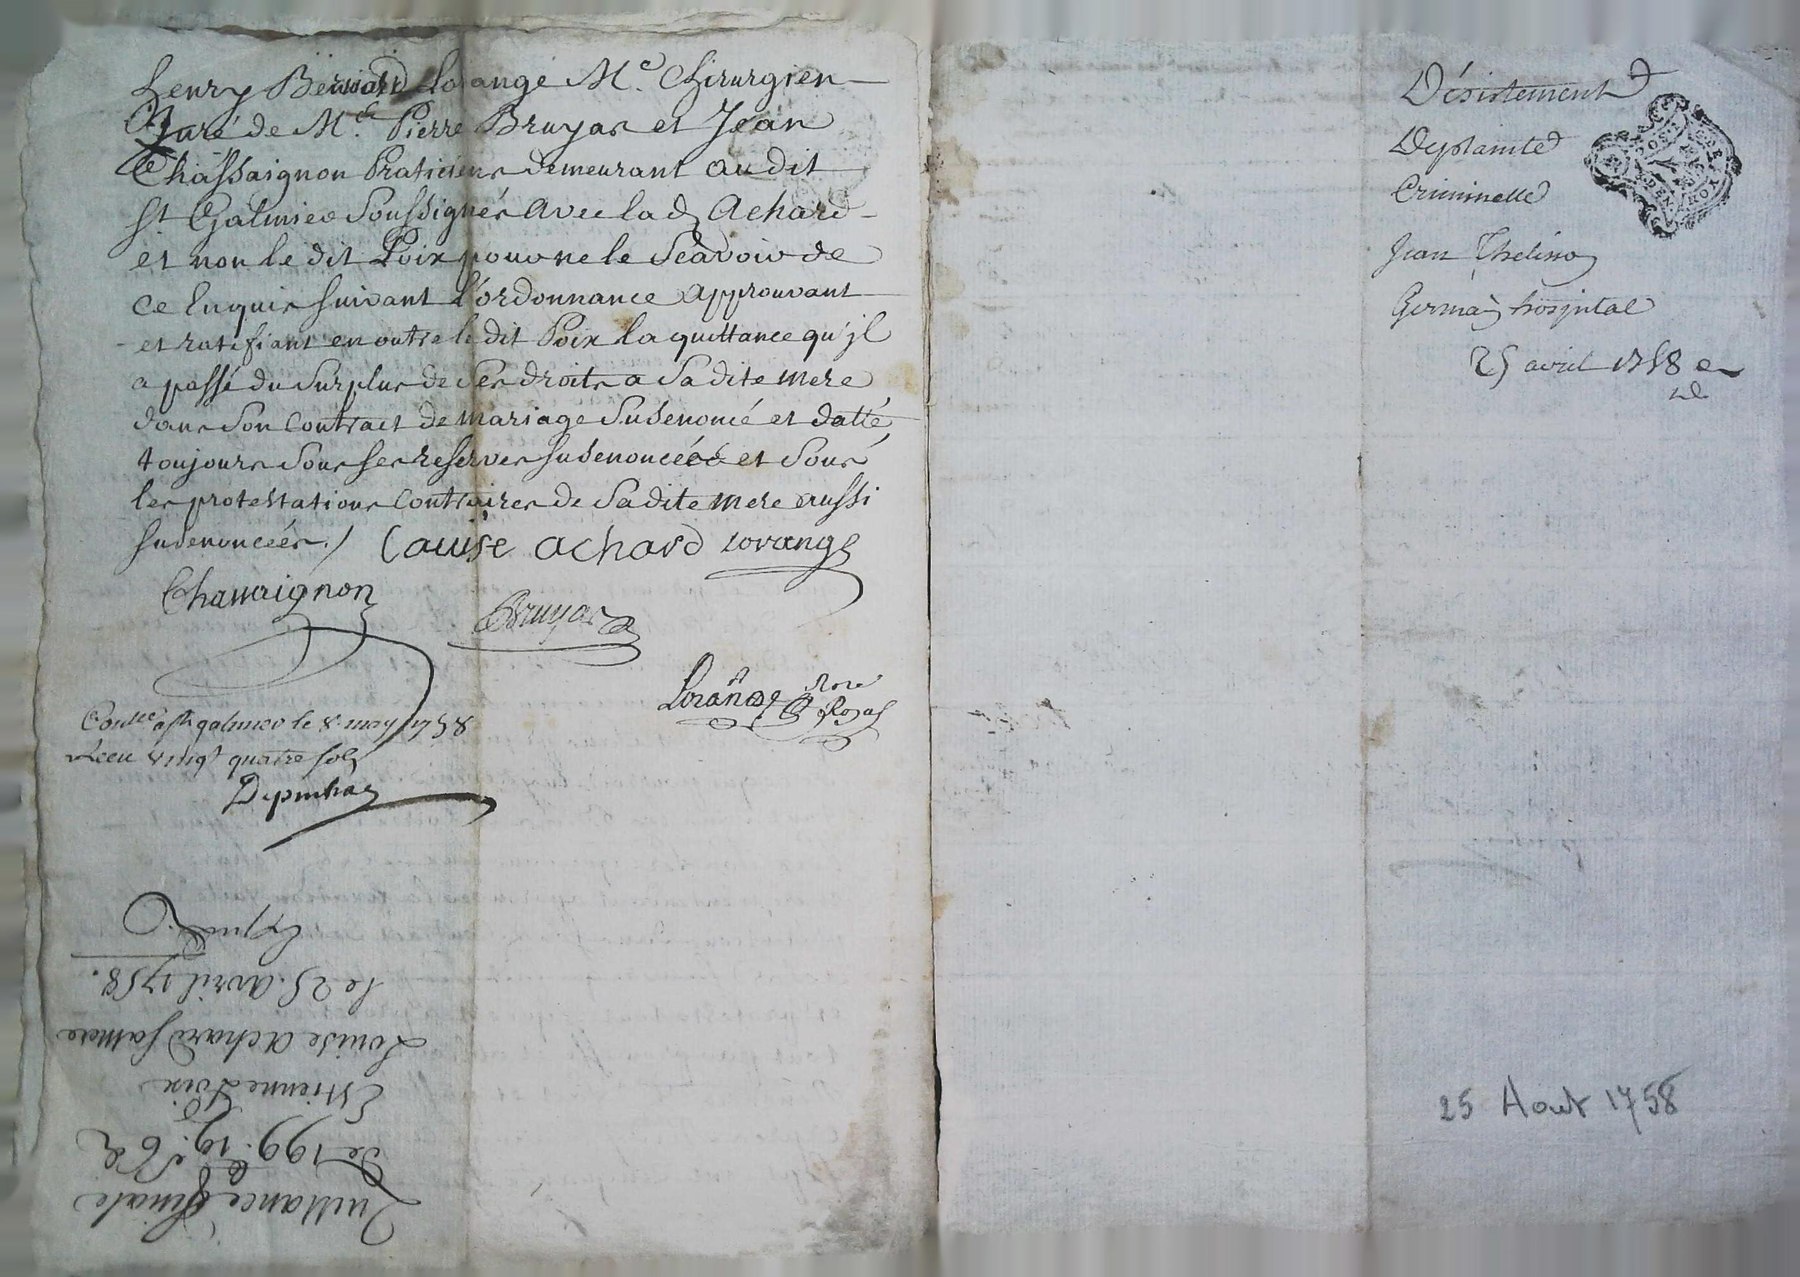 henry Bernard Lorange Me. Chirurgien
Juré de Me. Pierre Bruyas et Jean
Chassaignon Praticiens demeurant audit
St. Galmier Soussignés avec lad. Achard
et non le dit Poix pour ne le Scavoir de
ce Enquis suivant l'ordonnance approuvant
et ratifiant en outre le dit Poix la quittance qu'jl
a passé du Surplus de Ses droits a Sadite mere
dans Son Contract de mariage Susenoncé et datté
toujours Sous Ses reserves Susenonceés et Sous
les protestations Contraires de Sadite mere aussi
Susenonceés ./ Louise achard Lorange
Chassaignon
Bruyas
Lorange Nore Royal
Conlle a St galmier le 8 may 1758
Receu vingt quatre sols
Quittance finale
De 199. 19. 6 d
Estienne Poix
Louise Achard Sa mere
le 25 avril 1758.
Expied.
Désistement
De plainte
Criminelle
Jean
Germain hospital
25 avril 1758
25 Aout 1758